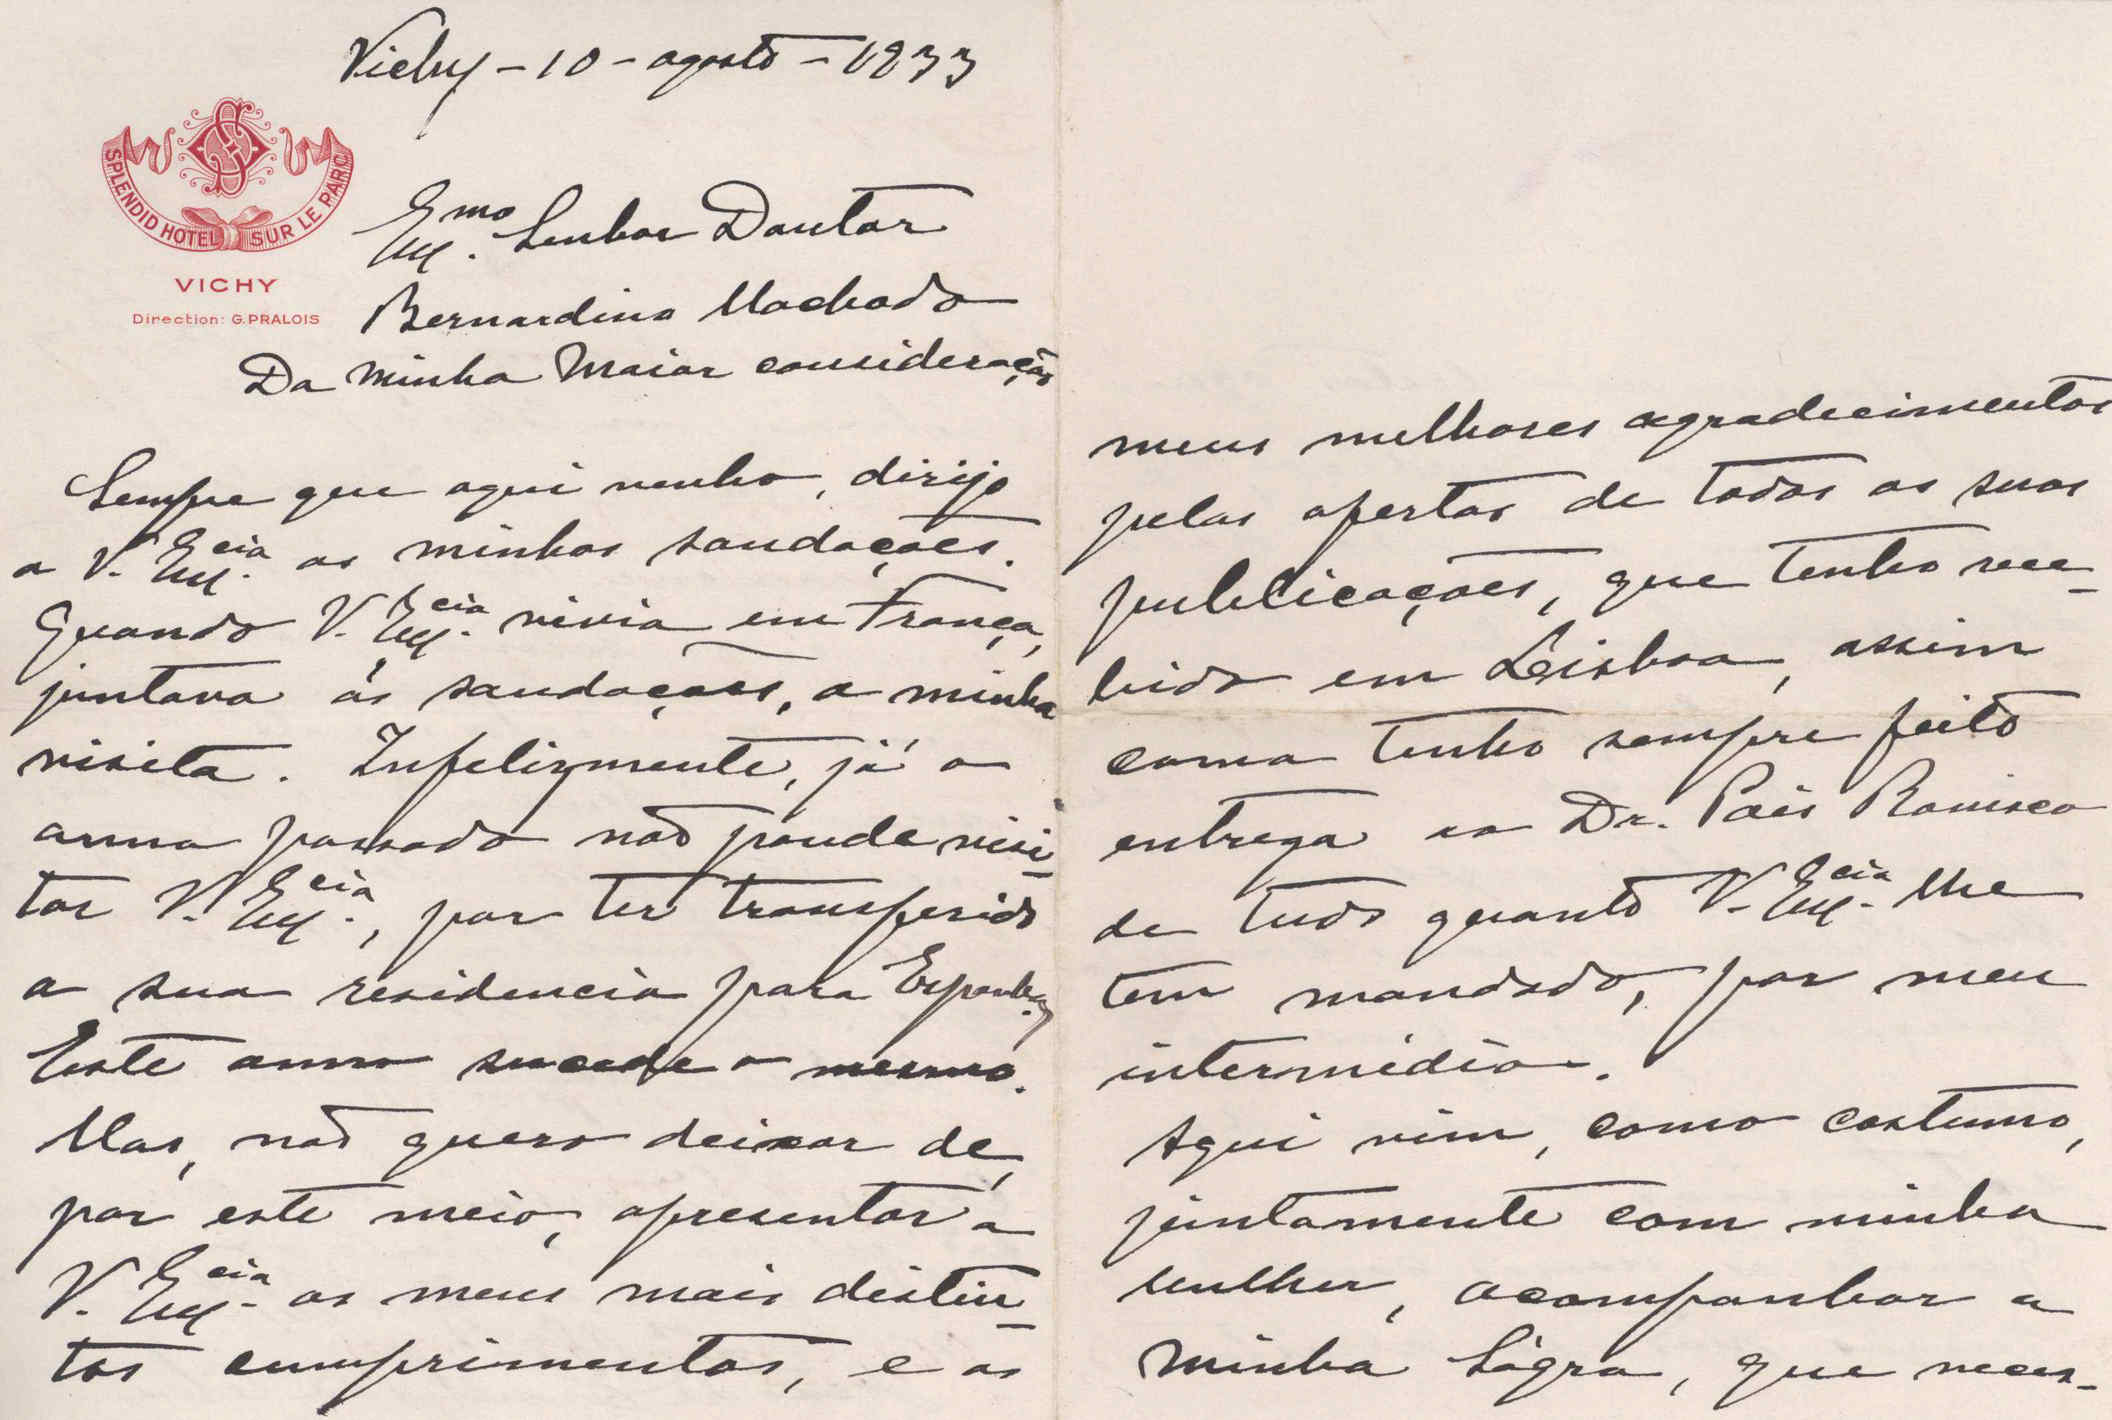 Vichy - 10 - agosto - 1933
SPLENDID HOTEL SUR LE PARC
VICHY
Direction: G. PRALOIS
Exmo. Senhor Doutor
Bernardino Machado
Da minha maior consideração
Sempre que aqui venho, dirijo
a V. Excia. as minhas saudações.
Quando V. Excia. vivia em França,
juntava ás saudações, a minha
visita. Infelizmente, já o
anno passado não poude visi-
tar V. Excia., por ter transferido
a sua residencia para Espanha,
Este anno sucede o mesmo.
Mas, não quero deixar de,
por este meio, apresentar a
V. Excia. os meus mais distin-
tos cumprimentos, e os
meus melhores agradecimentos
pelas ofertas de todas as suas
publicações, que tenho rece-
bido em Lisboa, assim
como tenho sempre feito
entrega ao Dr. Pais Rovisco
de tudo quanto V. Excia. lhe
tem mandado, por meu
intermédio.
Aqui vim, como costumo,
juntamente com minha
mulher, acompanhar a
minha Sógra, que neces-